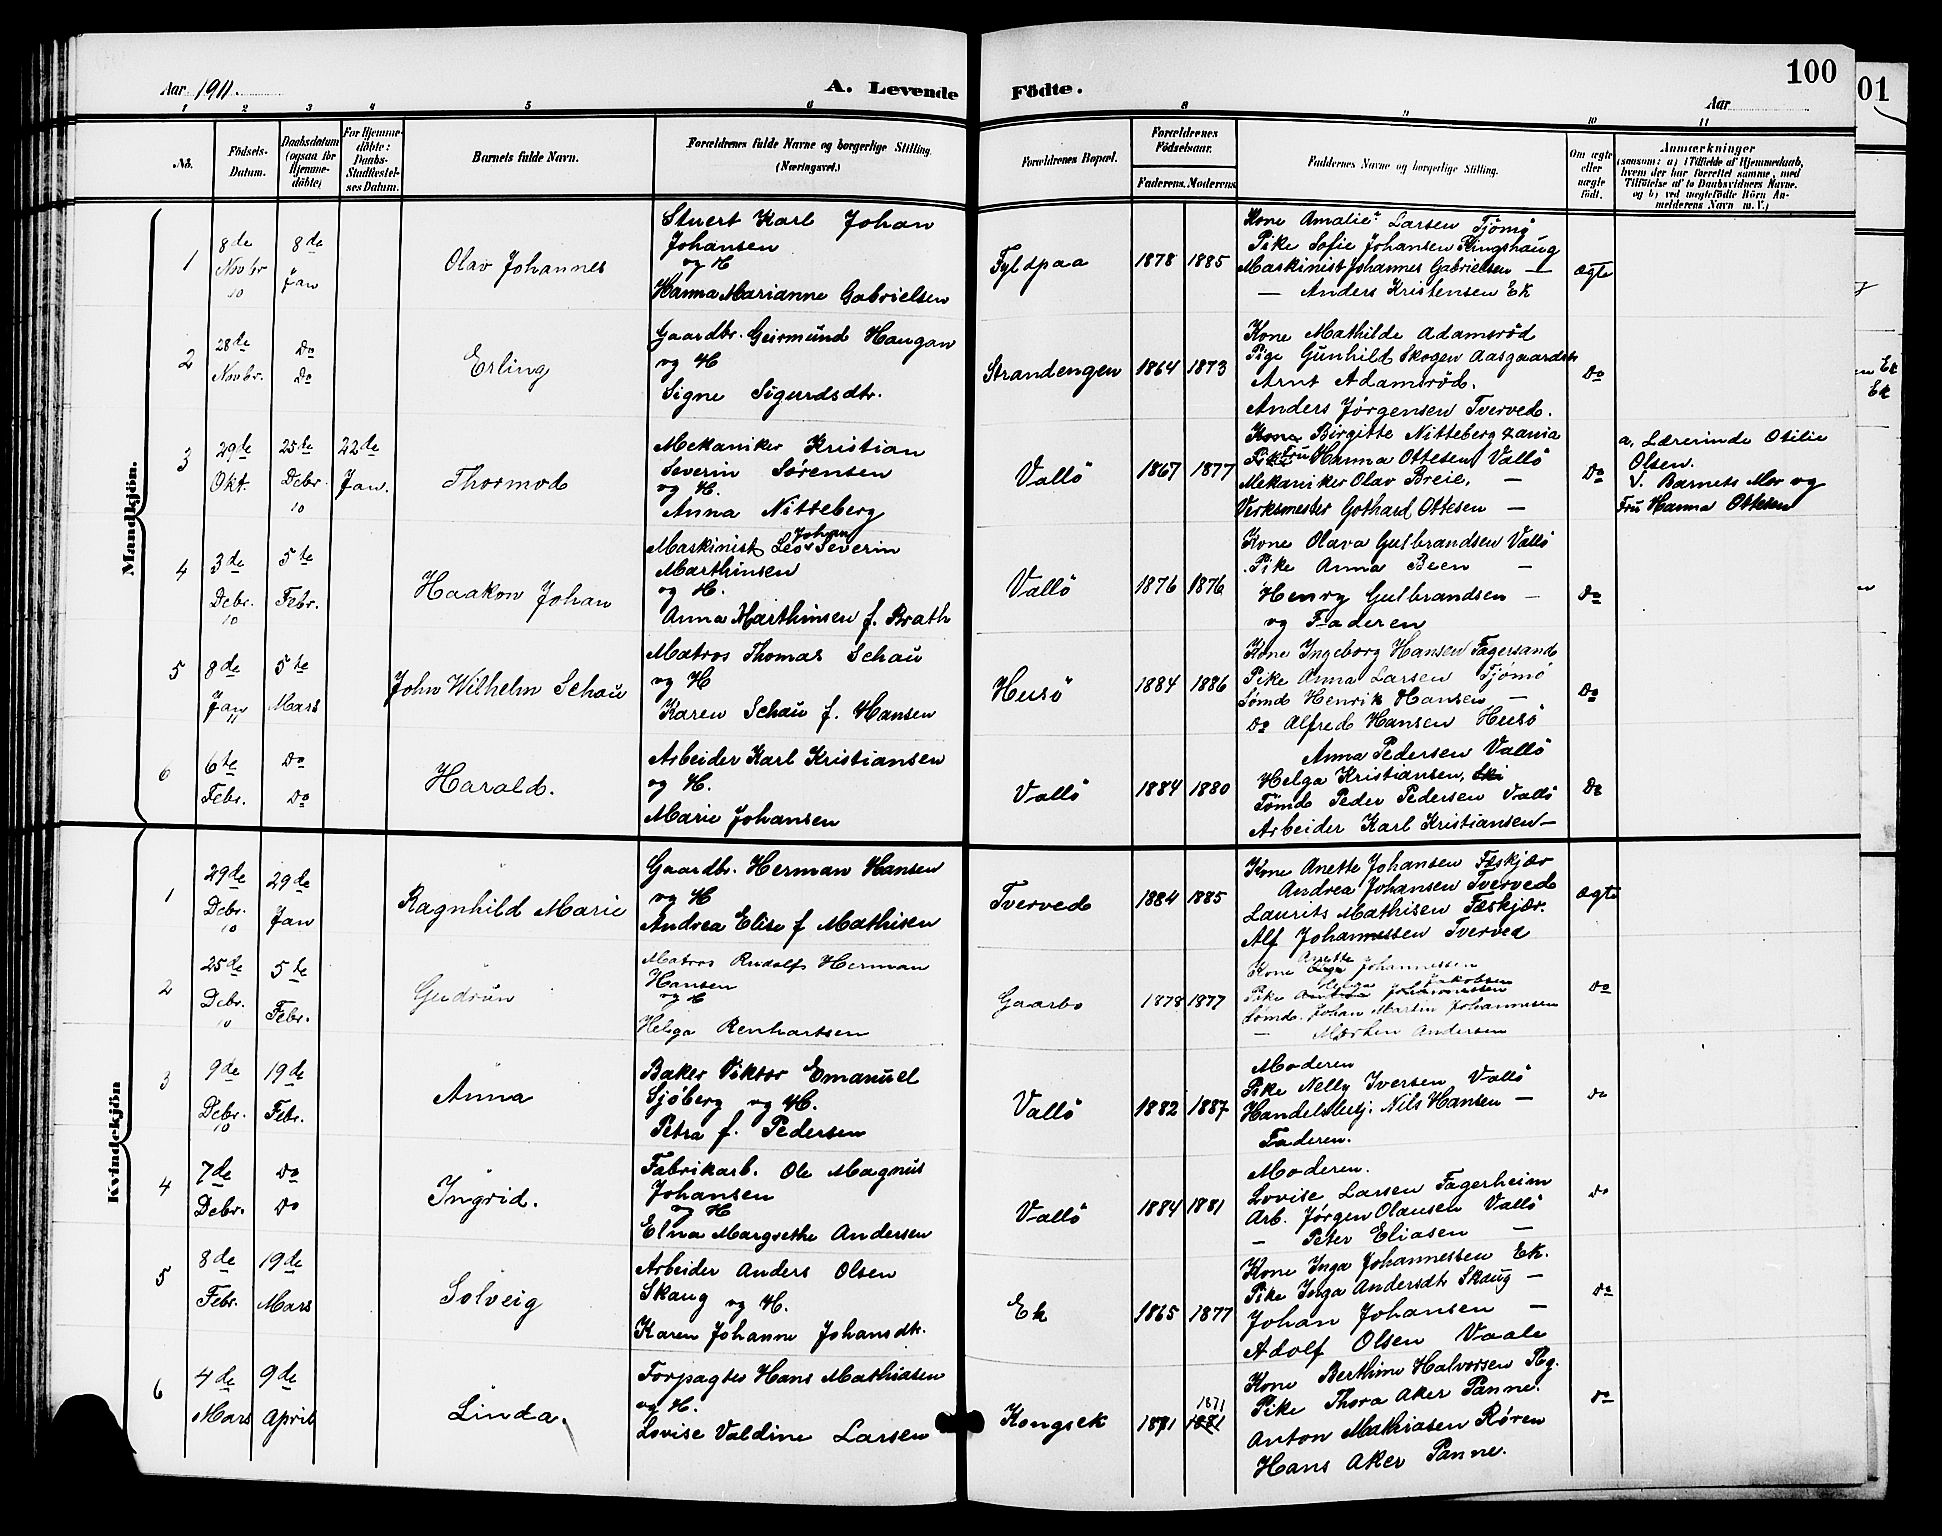 Aar 1911.
A. Levende
Födte.
Aar
100
01
1 2 3 4 5 6 8 9 10 11
No.
Födsels-
Datum.
Daabsdatum
(ogsaa for
Hjemme-
döbte)
For Hjemme-
döbte:
Daabs-
Stadfæstel-
ses Datum.
Barnets fulde Navn.
Forældrenes fulde Navne og borgerlige Stilling.
(Næringsvei.)
Forældrenes Bopæl.
Forældrenes
Födselsaar.
Faderens. Moderens.
Faddernes Navne og borgerlige Stilling.
Om ægte
eller
uægte
født.
Anmærkninger
(saasom: a) i Tilfælde af Hjemmedaab,
hvem der har forrettet samme, med
Tilföielse af to Daabsvidners Navne.
og b) ved uægtefödte Börn An-
melderens Navn m. V.)
Mandkjön.
1
8de
Novbr
10
8de
Jan
Olav Johannes
Stuert Karl Johan
Johansen
og H
Hanna Marianne Gabrielsen
Fyldpaa
1878 1885
Kone Amalie Larsen Tjømø
Pike Sofie Johansen Ringshaug
Maskinist Johannes Gabrielsen —
— Anders Kristensen Ek
Ægte
2
28de
Novbr.
Do
Do
Erling
Gaardbr. Geirmund Haugan
og H
Signe Sigurdsdtr.
Strandengen
1864 1873
Kone Mathilde Adamsrød
Pige Gunhild Skogen Aasgaardstr
Arnt Adamsrød.
Anders Jørgensen Tverved.
Do
3
29de
Okt.
25de
Debr.
10
22de
Jan.
Thormod
Mekaniker Kristian
Severin Sørensen
og H.
Anna Nitteberg
Vallö
1867 1877
Kone Birgitte Nitteberg
Pike Fru Hanna Ottesen Vallö
Mekaniker Olav Breie, —
Verksmester Gothard Ottesen —
Do
a, Lærerinde Otilie
Olsen.
V. Barnets Mor og
Fru Hanna Ottesen
4
3de
Debr.
10
5te
Febr.
Haakon Johan
Maskinist Leo Johan Severin
Marthinsen
og H.
Anna Marthinsen f. Brath
Vallö
1876 1876
Kone Olava Gulbrandsen Vallö
Pike Anna Been —
Henry Gulbrandsen —
og Faderen
Do
5
8de
Jan
11
5te
Mars
John Wilhelm Schau
Matros Thomas Schau
og H
Karen Schau f. Hansen
Husö
1884 1886
Kone Ingeborg Hansen Fagersand
Pike Anna Larsen Tjømö
Sømd Henrik Hansen —
Do Alfred Hansen Husö
Do
6
6te
Febr.
Do
Do
Harald.
Arbeider Karl Kristiansen
og H.
Marie Johansen
Vallö
1884 1880
Anna Pedersen Vallö
Helga Kristiansen, Ski
Tømd Peder Pedersen Vallö
Arbeider Karl Kristiansen —
Do
Kvindekjön
1
29de
Debr.
10
29de
Jan
Ragnhild Marie
Gaardbr. Herman Hansen
og H
Andrea Elise f Mathisen
Tverved
1884 1885
Kone Anette Johansen Fæskjær
Andrea Johansen Tverved
Laurits Mathisen Fæskjær.
Alf Johannessen Tverved
Ægte
2
25de
Debr.
10
5te
Febr.
Gudrun
Matros Rudolf Herman
Hansen
og H
Helga Renhartsen
Gaarbo
1878 1877
Kone Anette Johannessen
Pike Helga Jakobsen
Sømd. Johan Martin Johannesen
— Marthen Andersen
Do
3
9de
Debr.
10
19de
Febr.
Anna
Baker Viktor Emanuel
Sjöberg og H.
Petra f. Pedersen
Vallö
1882 1887
Moderen
Pike Nelly Iversen Vallö
Handelsbestj. Nils Hansen —
Faderen.
Do
4
7de
Debr.
Do
Do
Ingrid.
Fabrikarb. Ole Magnus
Johansen
og H
Elna Margrethe Andersen
Vallö
1884 1881
Moderen.
Lovise Larsen Fagerheim
Arb. Jørgen Olausen Vallö
— Peter Eliasen —
Do
5
8de
Febr.
19de
Mars
Solveig
Arbeider Anders Olsen
Skaug og H.
Karen Johanne Johansdtr.
Ek
1865 1877
Kone Inga Johannessen Ek.
Pike Inga Andersdtr Skaug —
Johan Johansen —
Adolf Olsen Vaale
Do
6
4de
Mars
9de
April
Linda.
Forpagter Hans Mathiasen
og H.
Lovise Valdine Larsen
Kongsek
1871 1871 1881
Kone Berthine Halvorsen Tbg.
Pike Thora Aker Panne.
Anton Mathiasen Røren
Hans Aker Panne.
Do